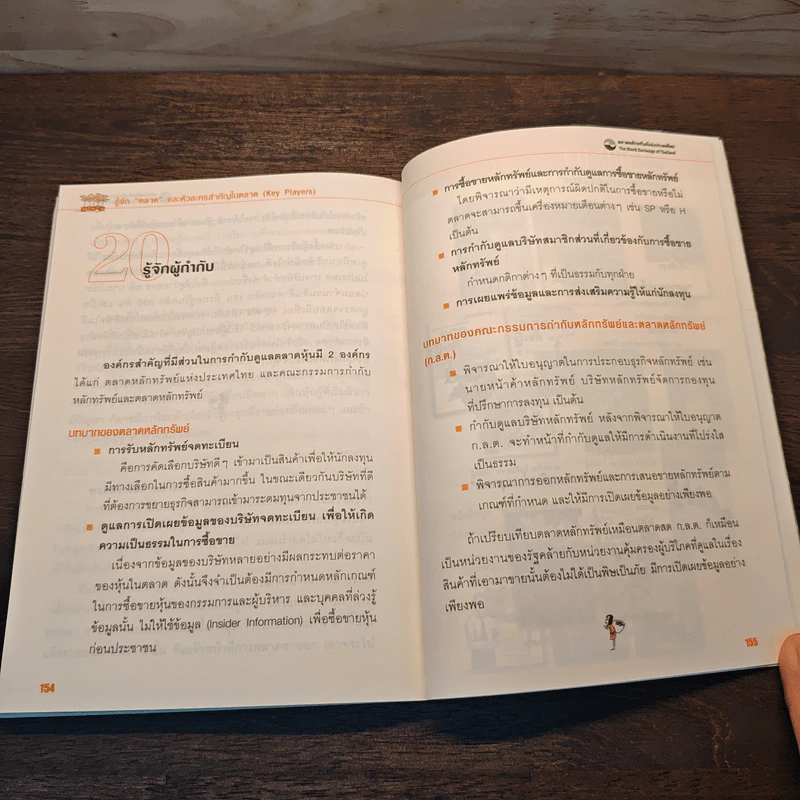 รู้จัก "ตลาด" และตัวละครสำคัญในตลาด (Key Players)
20
รู้จักผู้กำกับ
องค์กรสำคัญที่มีส่วนในการกำกับดูแลตลาดหุ้นมี 2 องค์กร
ได้แก่ ตลาดหลักทรัพย์แห่งประเทศไทย และคณะกรรมการกำกับ
หลักทรัพย์และตลาดหลักทรัพย์
บทบาทของตลาดหลักทรัพย์
การรับหลักทรัพย์จดทะเบียน
คือการคัดเลือกบริษัทดีๆ เข้ามาเป็นสินค้าเพื่อให้นักลงทุน
มีทางเลือกในการซื้อสินค้ามากขึ้น ในขณะเดียวกันบริษัทที่ดี
ที่ต้องการขยายธุรกิจสามารถเข้ามาระดมทุนจากประชาชนได้
ดูแลการเปิดเผยข้อมูลของบริษัทจดทะเบียน เพื่อให้เกิด
ความเป็นธรรมในการซื้อขาย
เนื่องจากข้อมูลของบริษัทหลายอย่างมีผลกระทบต่อราคา
ของหุ้นในตลาด ดังนั้นจึงจำเป็นต้องมีการกำหนดหลักเกณฑ์
ในการซื้อขายหุ้นของกรรมการและผู้บริหาร และบุคคลที่ล่วงรู้
ข้อมูลนั้น ไม่ให้ใช้ข้อมูล (Insider Information) เพื่อซื้อขายหุ้น
ก่อนประชาชน
154
ตลาดหลักทรัพย์แห่งประเทศไทย
The Stock Exchange of Thailand
การซื้อขายหลักทรัพย์และการกำกับดูแลการซื้อขายหลักทรัพย์
โดยพิจารณาว่ามีเหตุการณ์ผิดปกติในการซื้อขายหรือไม่
ตลาดจะสามารถขึ้นเครื่องหมายเตือนต่างๆ เช่น SP หรือ H
เป็นต้น
การกำกับดูแลบริษัทสมาชิกส่วนที่เกี่ยวข้องกับการซื้อขาย
หลักทรัพย์
กำหนดกติกาต่างๆ ที่เป็นธรรมกับทุกฝ่าย
การเผยแพร่ข้อมูลและการส่งเสริมความรู้ให้แก่นักลงทุน
บทบาทของคณะกรรมการกำกับหลักทรัพย์และตลาดหลักทรัพย์
(ก.ล.ต.)
พิจารณาให้ใบอนุญาตในการประกอบธุรกิจหลักทรัพย์ เช่น
นายหน้าค้าหลักทรัพย์ บริษัทหลักทรัพย์จัดการกองทุน
ที่ปรึกษาการลงทุน เป็นต้น
กำกับดูแลบริษัทหลักทรัพย์ หลังจากพิจารณาให้ใบอนุญาต
ก.ล.ต. จะทำหน้าที่กำกับดูแลให้มีการดำเนินงานที่โปร่งใส
เป็นธรรม
พิจารณาการออกหลักทรัพย์และการเสนอขายหลักทรัพย์ตาม
เกณฑ์ที่กำหนด และให้มีการเปิดเผยข้อมูลอย่างเพียงพอ
ถ้าเปรียบเทียบตลาดหลักทรัพย์เหมือนตลาดสด ก.ล.ต. ก็เหมือน
เป็นหน่วยงานของรัฐคล้ายกับหน่วยงานคุ้มครองผู้บริโภคที่ดูแลในเรื่อง
สินค้าที่เอามาขายนั้นต้องไม่ได้เป็นพิษเป็นภัย มีการเปิดเผยข้อมูลอย่าง
เพียงพอ
155